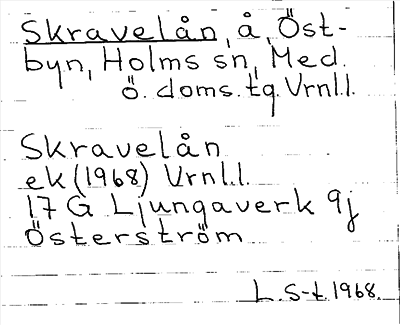 Skravelån, å, Öst-
byn, Holms sn, Med.
ö. doms. tg. Vrnl.l.
Skravelån
ek (1968) Vrnl.l.
17 G Ljungaverk 9j
Österström
L. S-t. 1968.